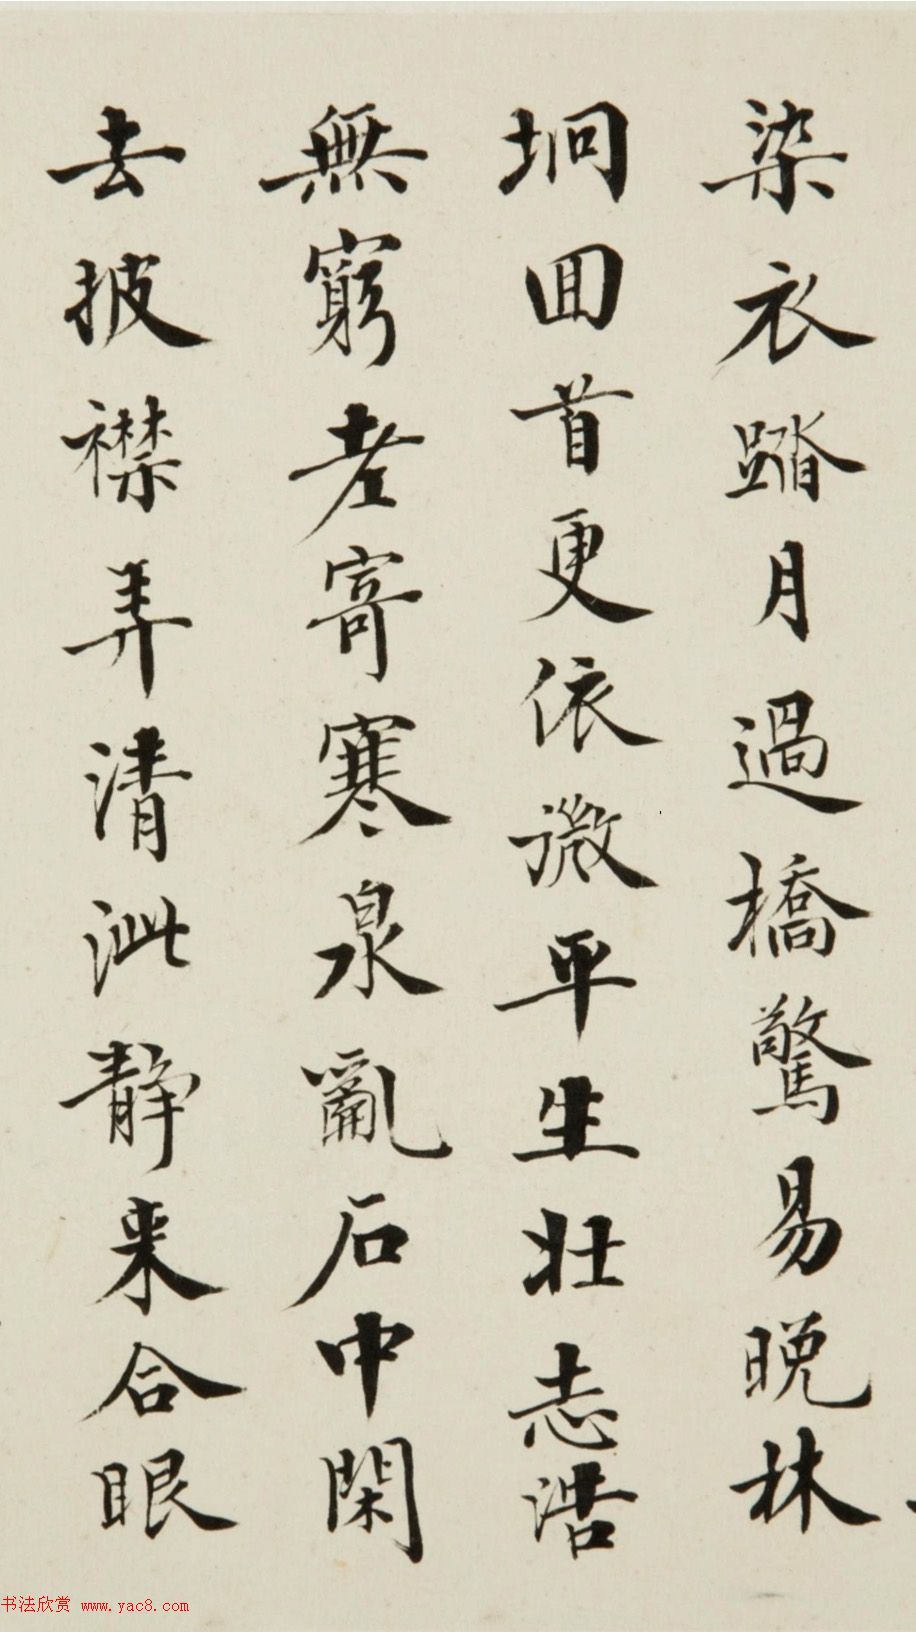 染衣踏月過橋驚易晚林
坰回首更依微平生壯志浩
無窮老寄寒泉亂石中閑
去披襟弄清泚靜來合眼
书法欣赏 www.yac8.com